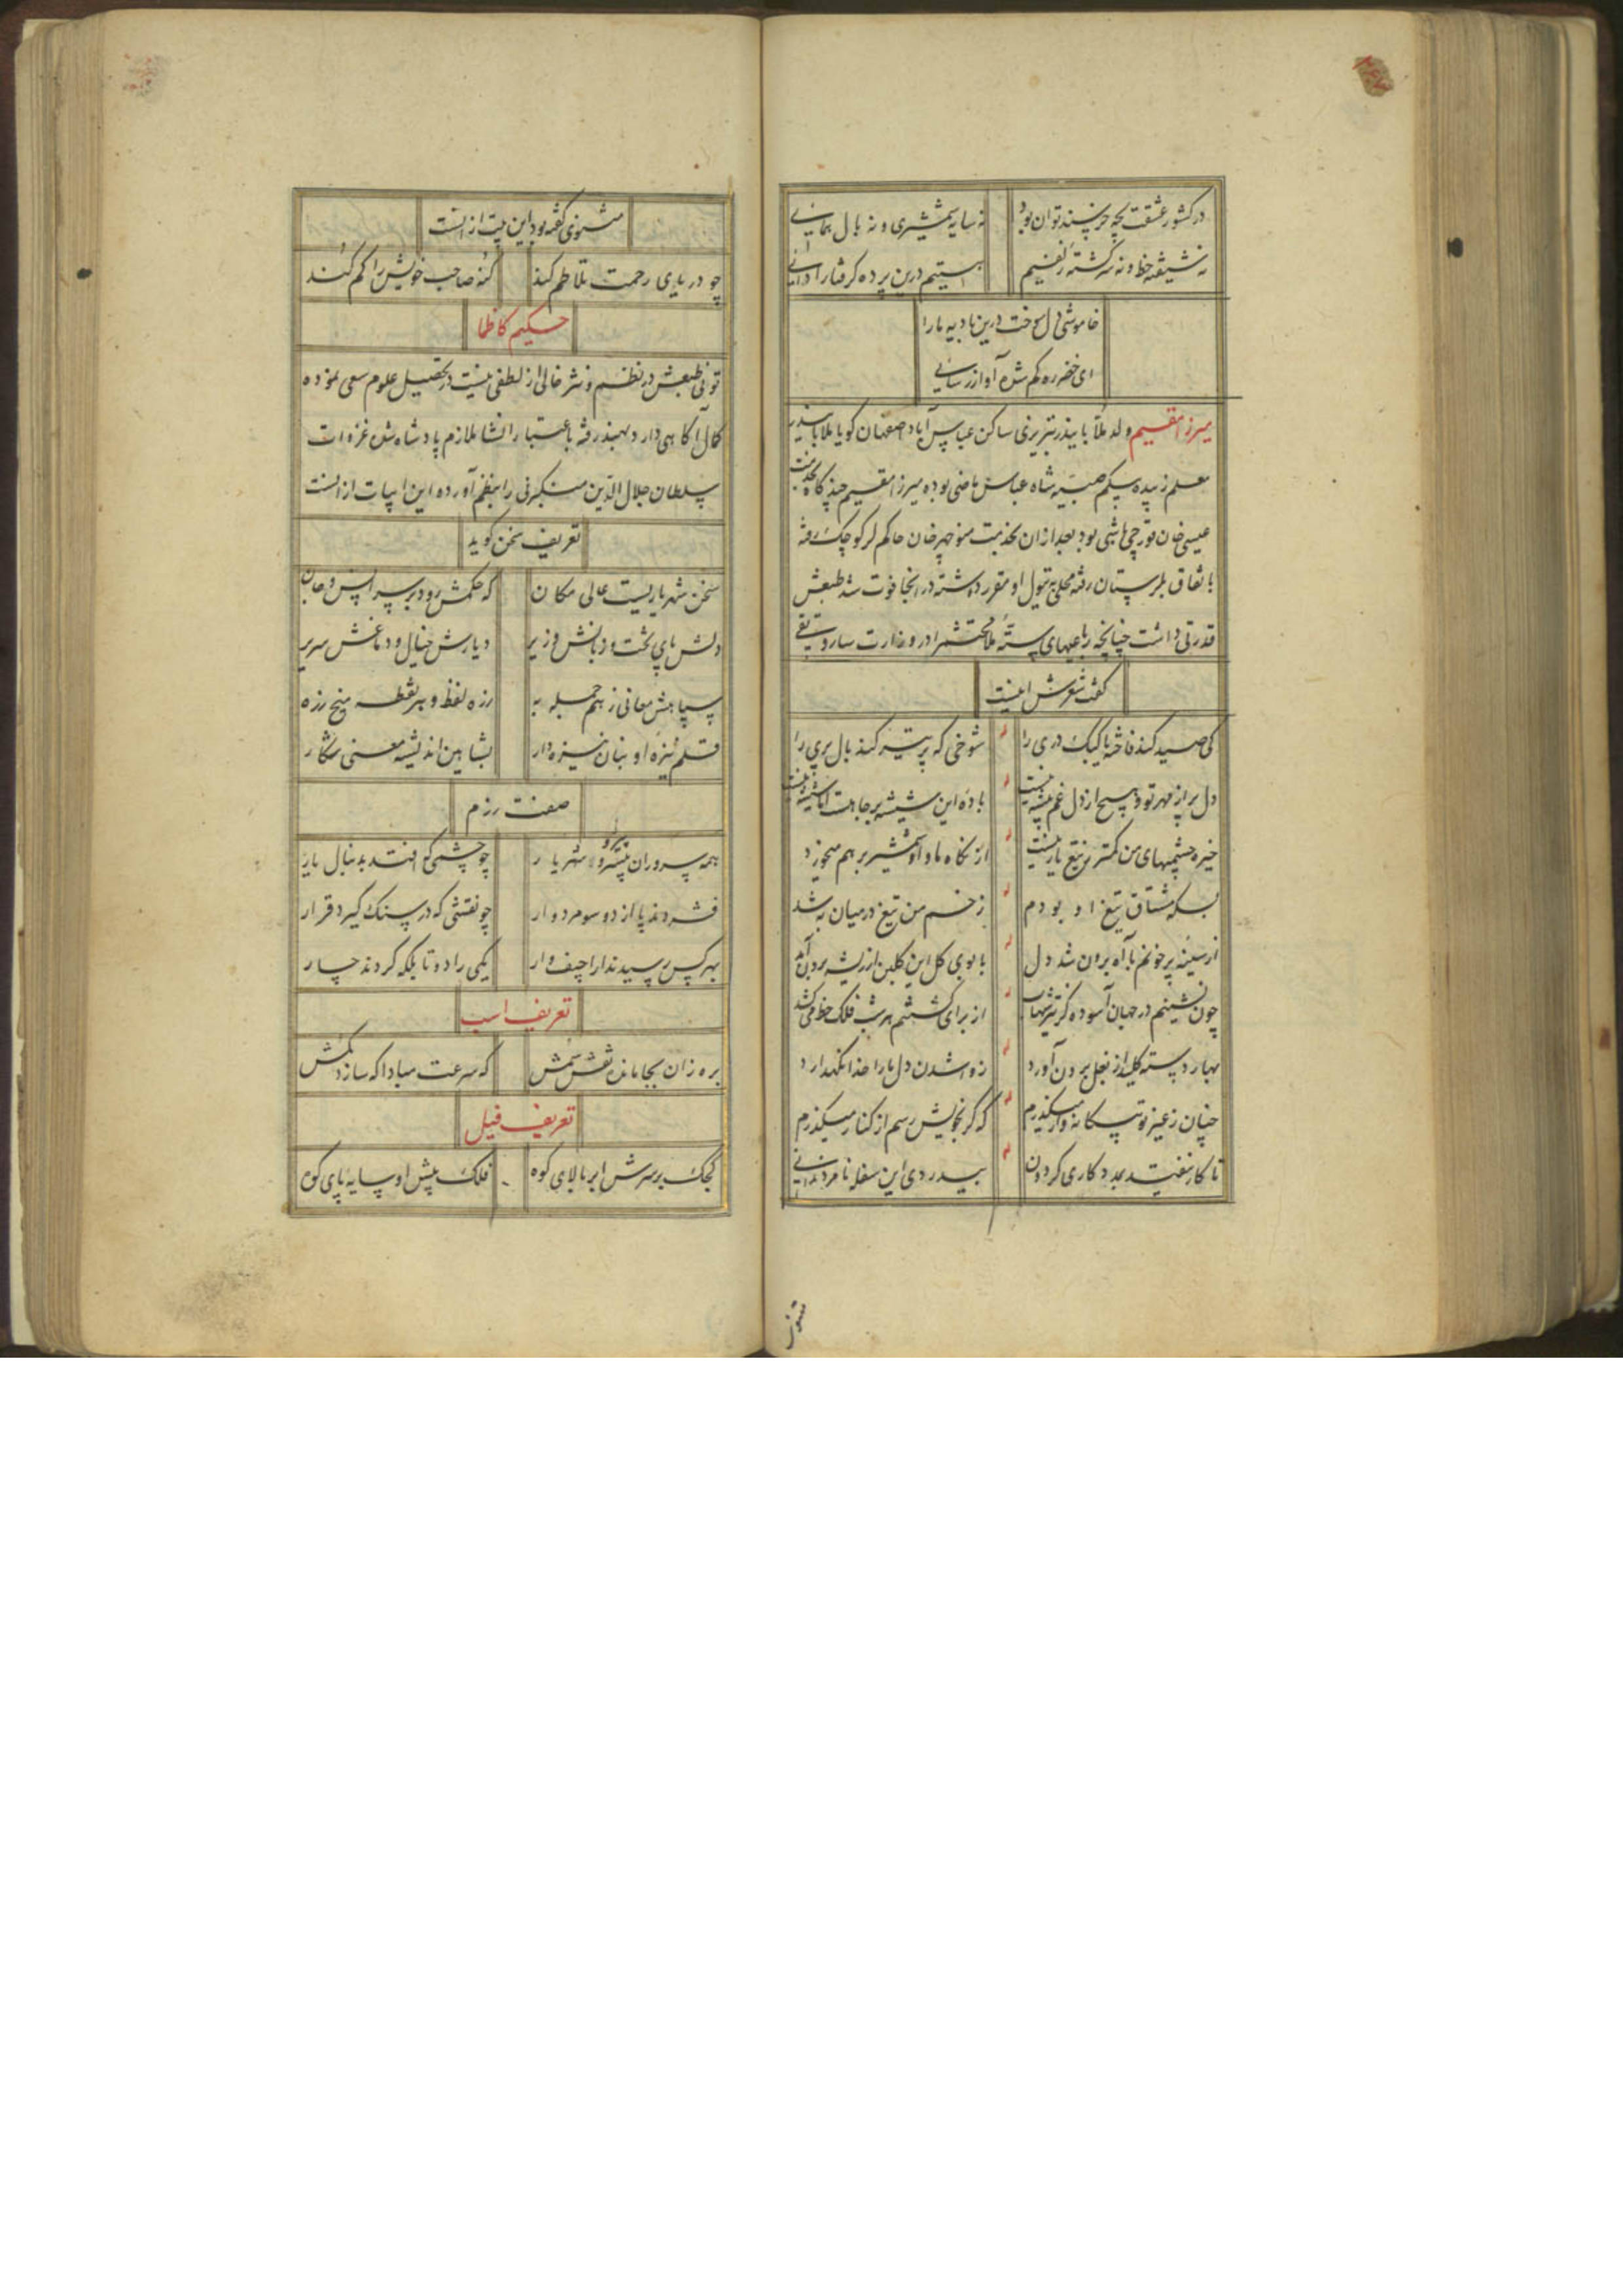 در کشور عشقت بچه خرسند توان بود
نه سایه شمشیری و نه بال همائی
نه شیفته خط و نه سرگشته زلفیم
هستیم درین پرده گرفتار ادائی
خاموشی دل سوخت درین بادیه ما را
ای خضر ره گم شده آواز رسائی
میرزا مقیم ولد ملا بابیذر تبریزی ساکن عباس آباد اصفهان گویا ملا بابیذر
معلم زبیده بیگم صبیه شاه عباس ماضی بوده میرزا مقیم چند گاه بخدمت
عیسی خان قورچی باشی بود بعد از ان بخدمت منوچهر خان حاکم لر کوچک رفته
باتفاق بلرستان رفته محلی بتیول او مقرر داشته در انجا فوت شد طبعش
قدرتی داشت چنانچه رباعیهای سته ملا محتشم را در وزارت سارو تقی
گفت شعرش اینست
کی صید کند فاخته یا کبک دری را
شوخی که پر تیر کند بال پری را
دل پر از مهر تو و هیچ از دل غم پیشه نیست
باده این شیشه بر جا هست اما شیشه نیست
خیره چشمیهای من کمتر ز تیغ یار نیست
از نگاه ما و او شمشیر بر هم میخورد
بسکه مشتاق تیغ او بودم
زخم من تیغ در میان به شد
از سینه پر خونم با آه برون شد دل
با بوی گل این گلبن از ریشه برون آمد
چون نشینم در جهان آسوده کز تیر شهاب
از برای کشتنم هر شب فلک خط می کشد
بهار دسته گل از بغل برون آورد
ز وا شدن دل ما را خدا نگهدارد
چنان ز غیر تو بیگانه وار میگذرم
که گر بخویش رسم از کنار میگذرم
تا کار نیفتد بمددکاری گردون
بیدردی این سفله نامرد ندانی
مثنوی
مثنوی گفته بود این بیت از انست
چو دریای رحمت تلاطم کند
گنه صاحب خویش را گم کند
حکیم کاظما
تونی طبعش در نظم و نثر خالی از لطفی نیست در تحصیل علوم سعی نموده
کمال آگاهی دارد بهند رفته باعتبار انشا ملازم پادشاه شد غزوات
سلطان جلال الدین منکبرنی را بنظم آورده این ابیات از انست
تعریف سخن گوید
سخن شهریاریست عالی مکان
که حکمش رود بر سر انس و جان
دلش پای تخت و زبانش وزیر
دیارش خیال و دماغش سریر
سپاهش معانی ز هم جمله به
زره لفظ و هر نقطه میخ زره
قلم نیزه او بنان نیزه دار
بشاهین اندیشه معنی شکار
صفت رزم
همه سروران پیشرو شهریار
چو چشمی که افتد بدنبال یار
فشردند پا از دو سو مرد وار
چو نقشی که در سنگ گیرد قرار
بهر کس رسیدند از حیف وار
یکی را دو تا بلکه کردند چار
تعریف اسب
بره زان بجا ماند نقش سمش
که سرعت مبادا که سازد گمش
تعریف فیل
کجک بر سرش ابر بالای کوه
فلک پیش او سایه پای کوه